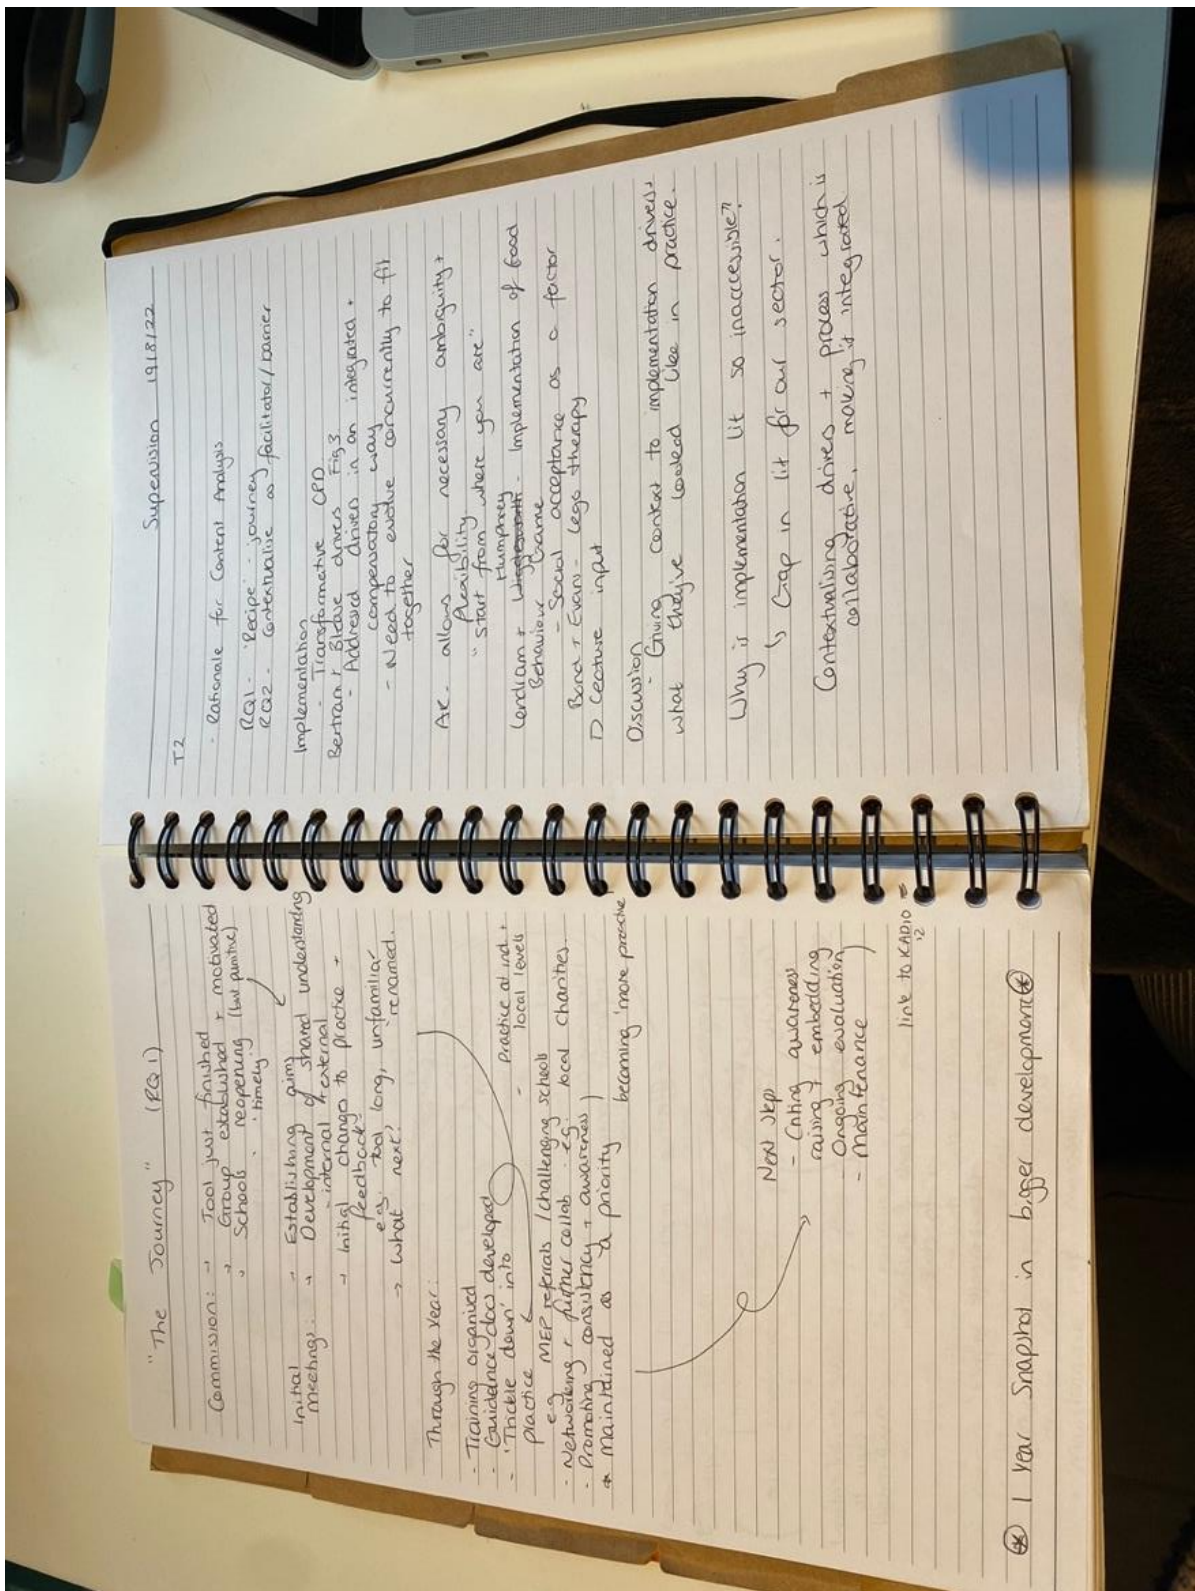 "The Journey" (RQ1)
Commission: → Tool just finished
→ Group established + motivated
→ Schools reopening (but punitive)
'timely'
Initial → Establishing aims
meetings: → Development of shared understanding
internal + external
→ Initial change to practice +
feedback
e.g. tool long, unfamiliar
→ What next? renamed.
Through the Year:
- Training organised
- Guidance docs developed
- 'Trickle down' into - Practice at ind +
practice local levels
e.g. MEP referrals / challenging schools
- Networking + further collab e.g. local charities
- Promoting consistency + awareness)
* Maintained as a priority
becoming 'more proactive'
Next step
- Cnting awareness
raising + embedding
- Ongoing evaluation
- Maintenance
link to RADIO =
12
* 1 Year Snapshot in bigger development *
Supervision 19/8/22
T2
- Rationale for Content Analysis
RQ1 - 'Recipe' - journey
RQ2 - contextualise as facilitator/barrier
Implementation
- Transformative CPD
Bertram + Blease drivers Fig 3
- Addressed drivers in an integrated +
compensatory way
- Need to evolve concurrently to fit
together
AR. allows for necessary ambiguity +
flexibility
"start from where you are"
Humphrey
Lendrum + - Implementation of Good
Behaviour Game
- Social acceptance as a factor
Bond + Evans - Lego therapy
D Lecture input
Discussion
- Giving context to implementation drivers +
what they've looked like in practice.
Why is implementation lit so inaccessible?
↳ Gap in lit for our sector.
Contextualising drivers + process which is
collaborative, making it integrated